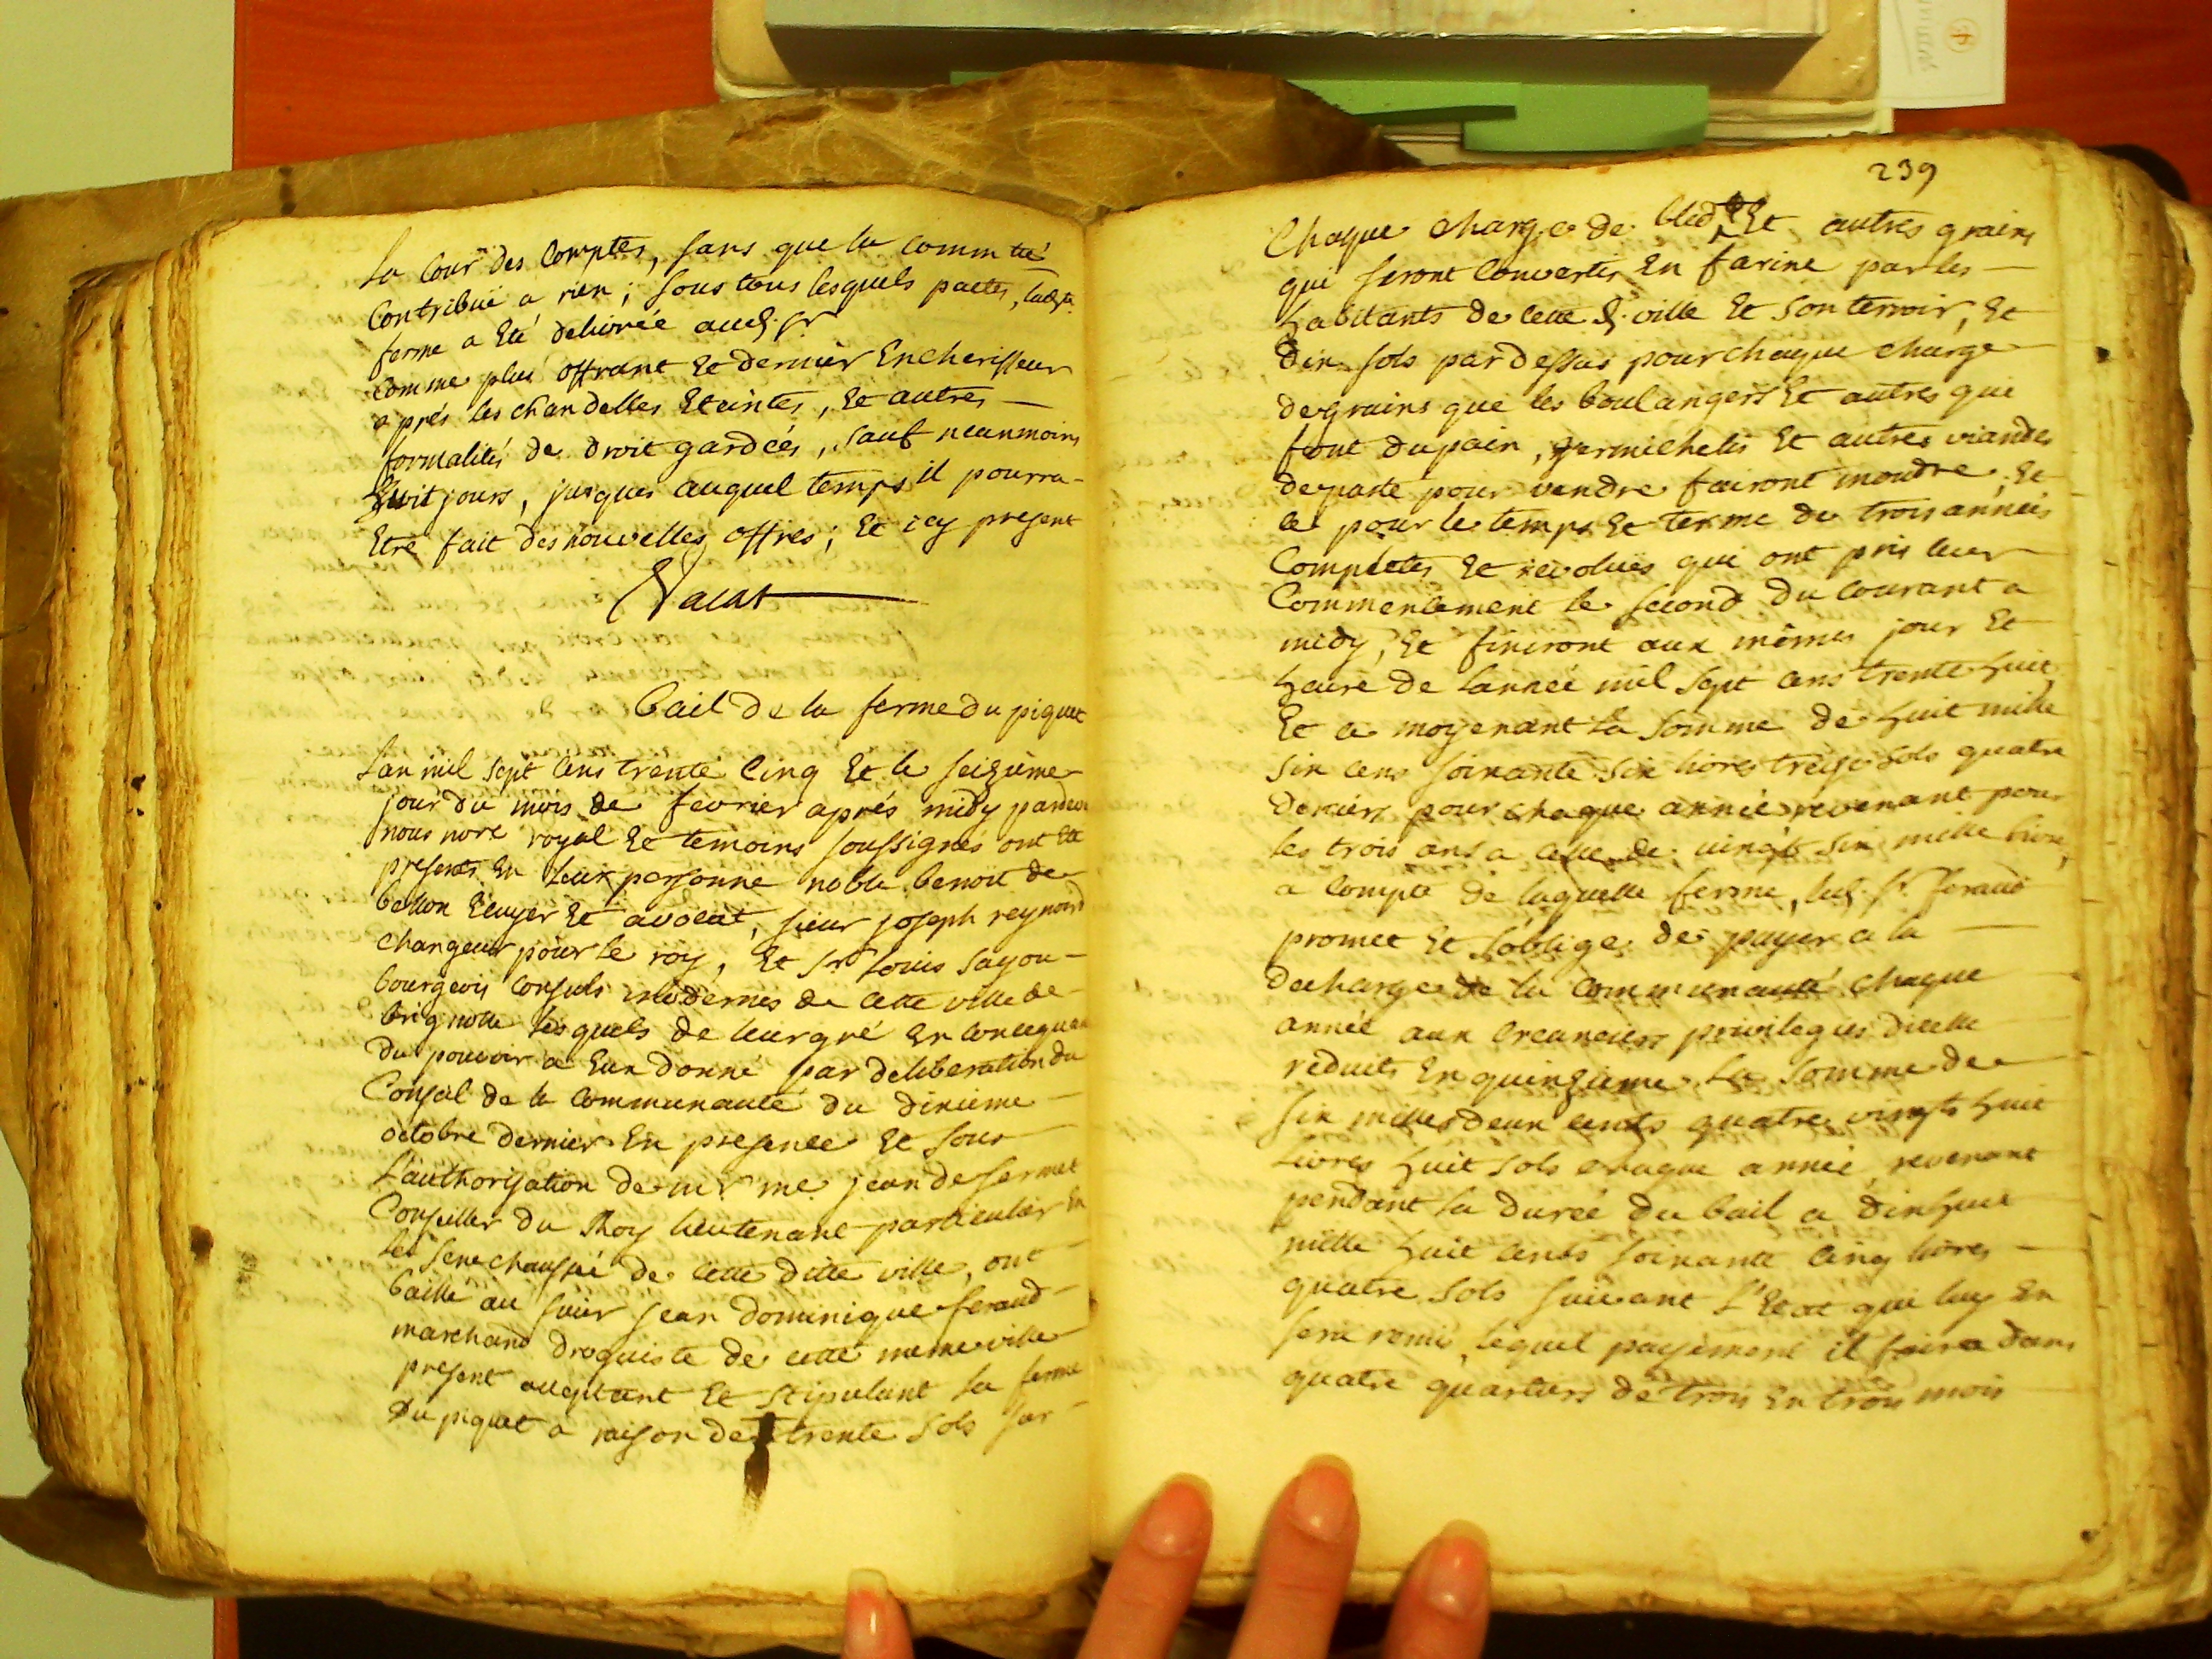 la Cour des Comptes, sans que la commté
Contribue a rien; sous tous lesquels pactes, lad.
ferme a Eté delivrée aud. sr
comme plus offrant Et dernier Encherisseur
aprés les chandelles Eteintes, Et autres
formalités de droit gardées, sauf neanmoins
huit jours, jusques auquel temps il pourra
Etre fait des nouvelles offres; Et icy present
Vacat
bail de la ferme du piquet
Lan mil sept cens trente Cinq Et le seizieme
jour du mois de fevrier aprés midy pardevt
nous nore royal Et temoins soussignés ont Eté
presents En leur personne noble benoit de
bellon Ecuyer Et avocat, sieur joseph reynard
changeur pour le roy, Et Sr Louis sayou
bourgeois Consuls modernes de cette ville de
brignolle lesquels de leur gré En Consequance
du pouvoir a Eux donné par deliberation du
Conseil de la Communauté du dixieme
octobre dernier En presence Et sous
l'authorisation de mr me jean de sermet
Conseiller du Roy lieutenant particulier En
la senechaussée de cette ditte ville, ont
baillé au sieur jean dominique feraud
marchand droguiste de cette meme ville
present acceptant Et stipulant la ferme
du piquet a raison de trente sols sur
239
Chaque charge de bled Et autres grains
qui seront Convertis En farine par les
habitants de cette d. ville Et son terroir, Et
dix sols par dessus pour chaque charge
de grains que les boulangers Et autres qui
font du pain, vermichelis Et autres viandes
de paste pour vendre fairont moudre, Et
ce pour le temps Et terme de trois années
Completes Et revolues qui ont pris leur
Commencement le second du courant a
midy, Et finiront aux mêmes jour Et
heure de l'année mil sept cens trente huit
Et ce moyenant la somme de huit mille
six cens soixante six livres treize sols quatre
deniers pour chaque année revenant pour
les trois ans a celle de vingt six mille livres,
a Compte de laquelle ferme, led. sr. feraud
promet Et s'oblige de payer a la
decharge de la Communauté chaque
année aux Creanciers privilegiés dicelle
reduits En quinzieme la somme de
six mille deux cents quatre vingts huit
Livres huit sols chaque année, revenant
pendant la durée du bail a dix huit
mille huit cents soixante cinq livres
quatre sols suivant l'Etat qui luy En
sera remis, lequel payement il faira dans
quatre quartiers de trois En trois mois